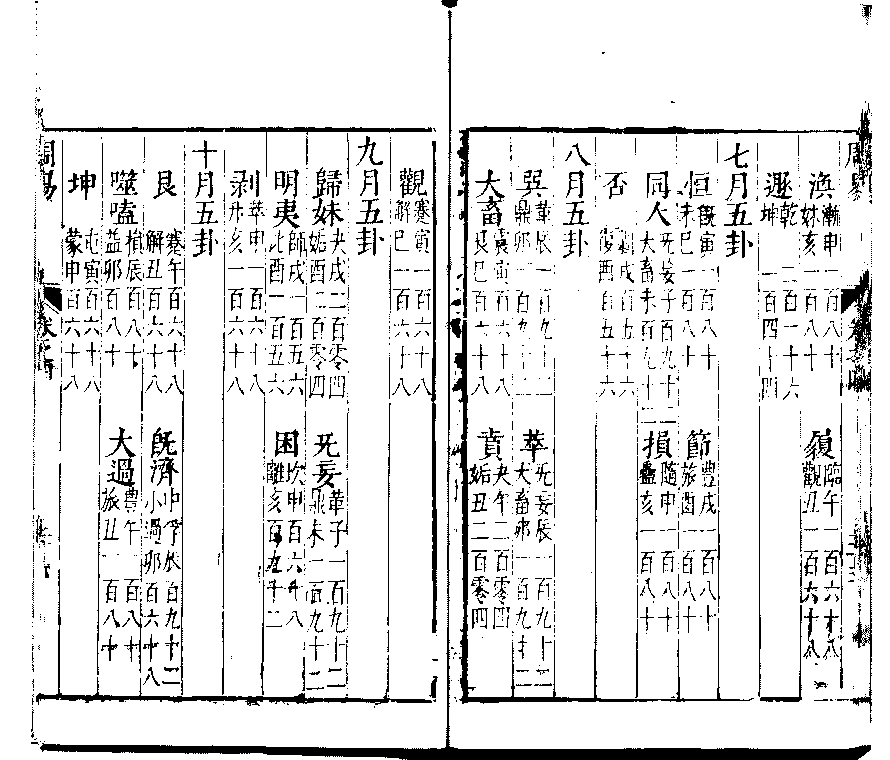 周易 卷之四
渙 漸申一百八十 妹亥一百八十 頤 臨午一百六十八 觀丑一百六十八
遯 乾二百一十六 坤一百四十四
七月五卦
恒 既寅一百八十 未巳一百八十 節 豐戌一百八十 旅酉一百八十
同人 无妄子百九十二 大畜未百九十二 損 隨申一百八十 蠱亥一百八十
否 戌百五十六 復酉百五十六
八月五卦
巽 革辰一百九十二 鼎卯一百九十二 萃 无妄辰一百九十二 大畜卯一百九十二
大畜 蹇寅百六十八 艮巳百六十八 賁 夬午二百零四 姤丑二百零四
觀 蹇寅一百六十八 解巳一百六十八
九月五卦
歸妹 夬戌二百零四 姤酉二百零四 无妄 革子一百九十二 鼎未一百九十二
明夷 師戌一百五六 比酉一百五六 困 坎申百六十八 離亥百九十二
剥 萃申一百六十八 升亥一百六十八
十月五卦
艮 蹇午百六十八 解丑百六十八 既濟 中孚辰百九十二 小過卯百六十八
噬嗑 損辰百八十 益卯百八十 大過 豐午一百八十 旅丑一百八十
坤 屯寅百六十八 蒙申百六十八
周易 卷之四